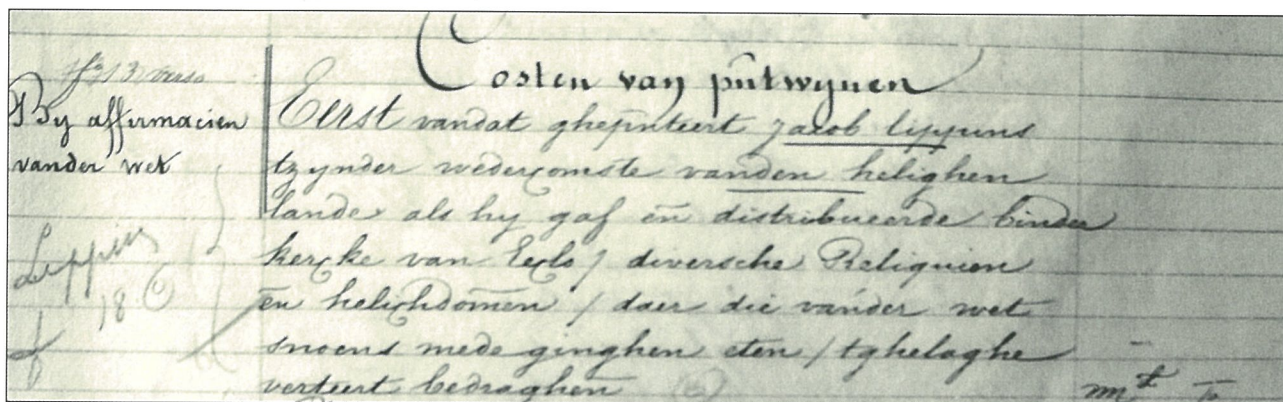 Costen van pūtwynen
By affirmacien
vander wet
Eerst vandat ghepn̄teert Jacob lippins
tzynder wedercomste vanden helighen
lande als hy gaf en̄ distribueerde binder
kercke van Eeclo / diversche Reliquien
en̄ helichdomen / daer die vander wet
snoens mede ginghen eten / tghelaghe
verteert bedraghen̄
Lippins